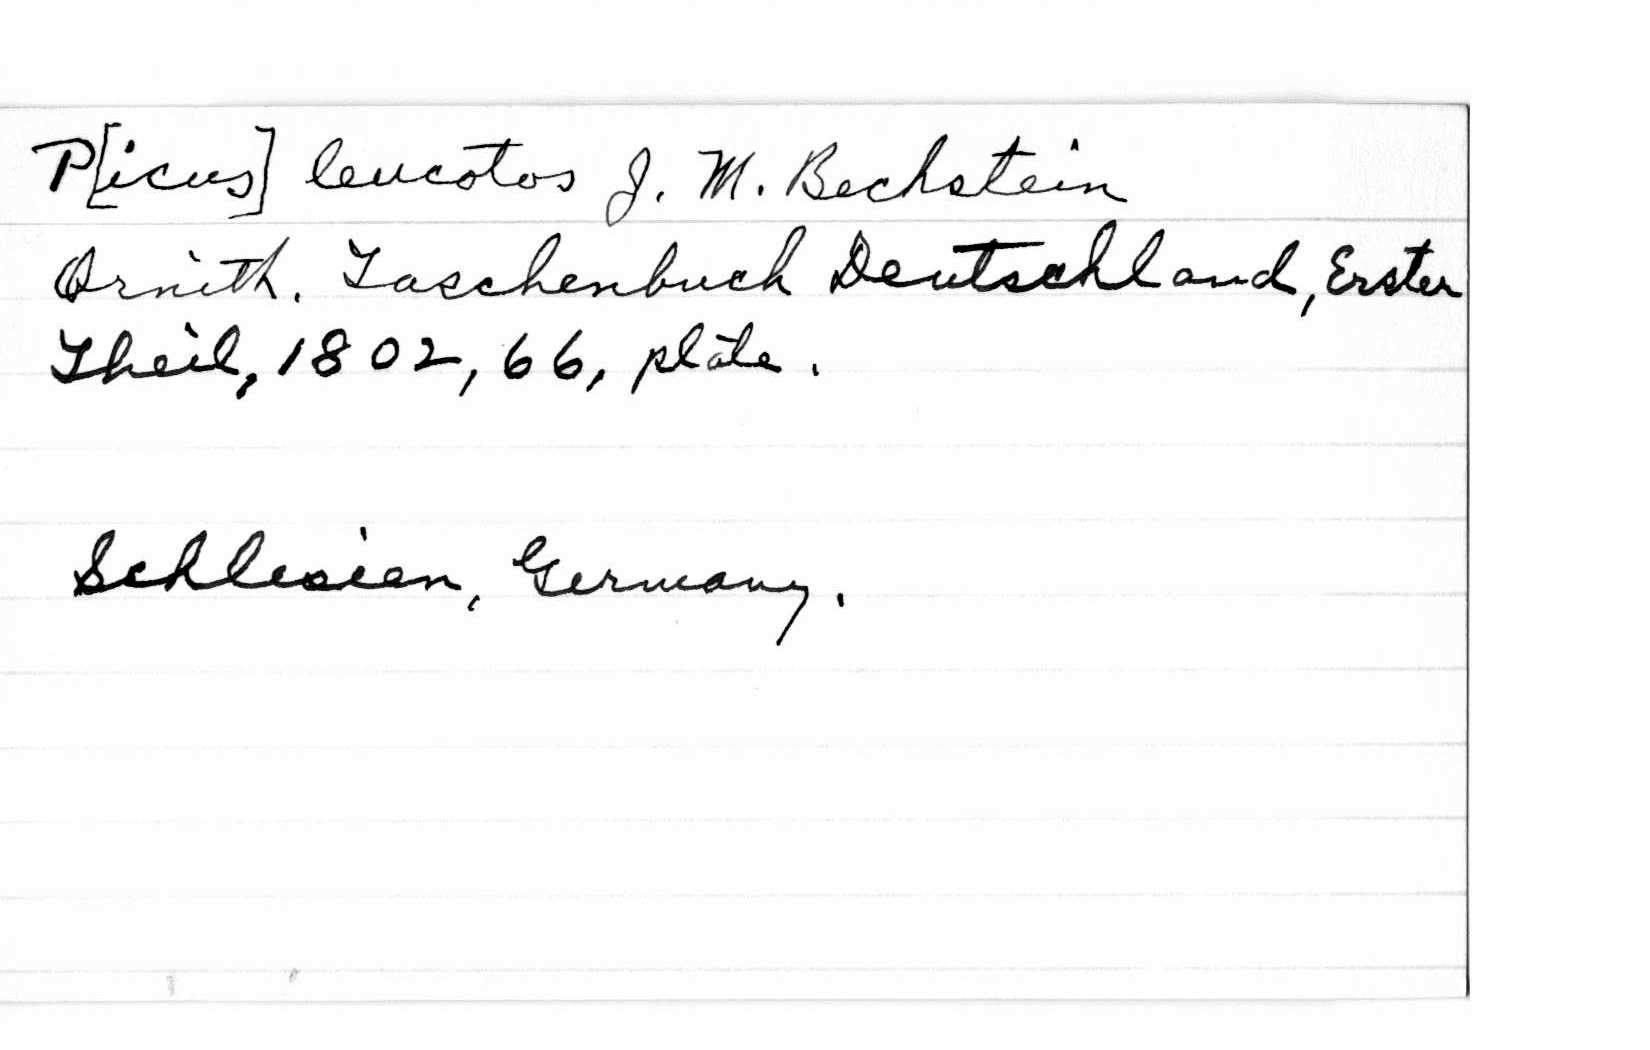 P[icus] leucotos J. M. Bechstein
Ornith. Taschenbuch Deutschland, Erster
Theil, 1802, 66, plate.
Schlesien, Germany.